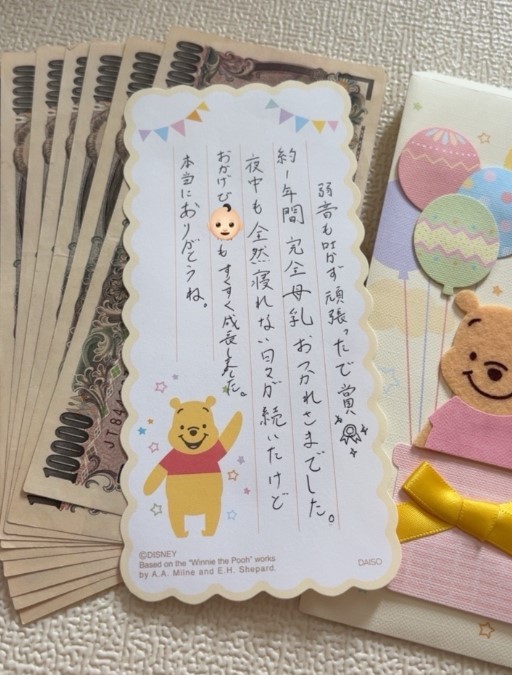 弱音も吐かず頑張ったで賞
約1年間 完全母乳 おつかれさまでした。
夜中も全然寝れない日々が続いたけど
おかげで👶もすくすく成長しました。
本当にありがとうね。
©DISNEY
Based on the "Winnie the Pooh" works
by A.A. Milne and E.H. Shepard.
DAISO
10000
10000